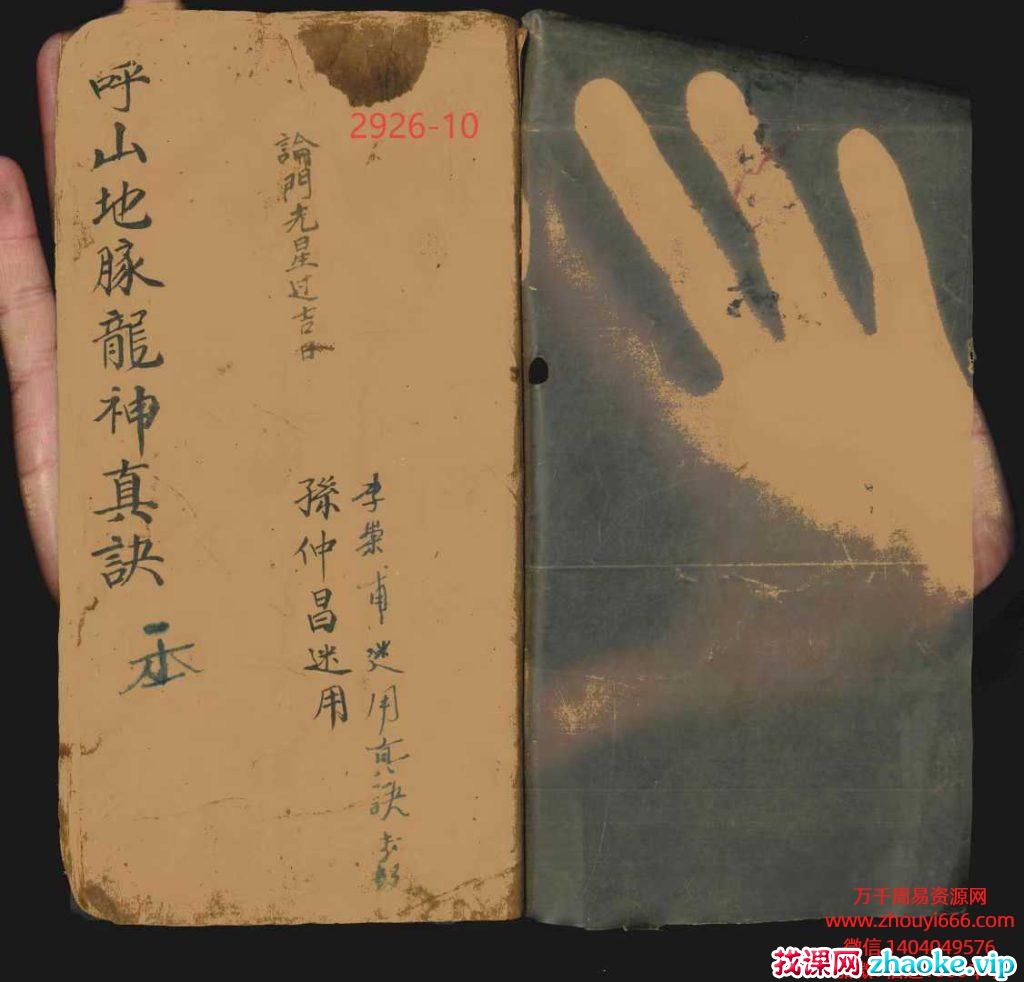 呼山地脉龍神真訣
一本
2926-10
論門光星过吉日
孫仲昌迷用
李榮甫迷用真訣
万千周易资源网
www.zhouyi666.com
微信 1404049576
找课网 zhaoke.vip